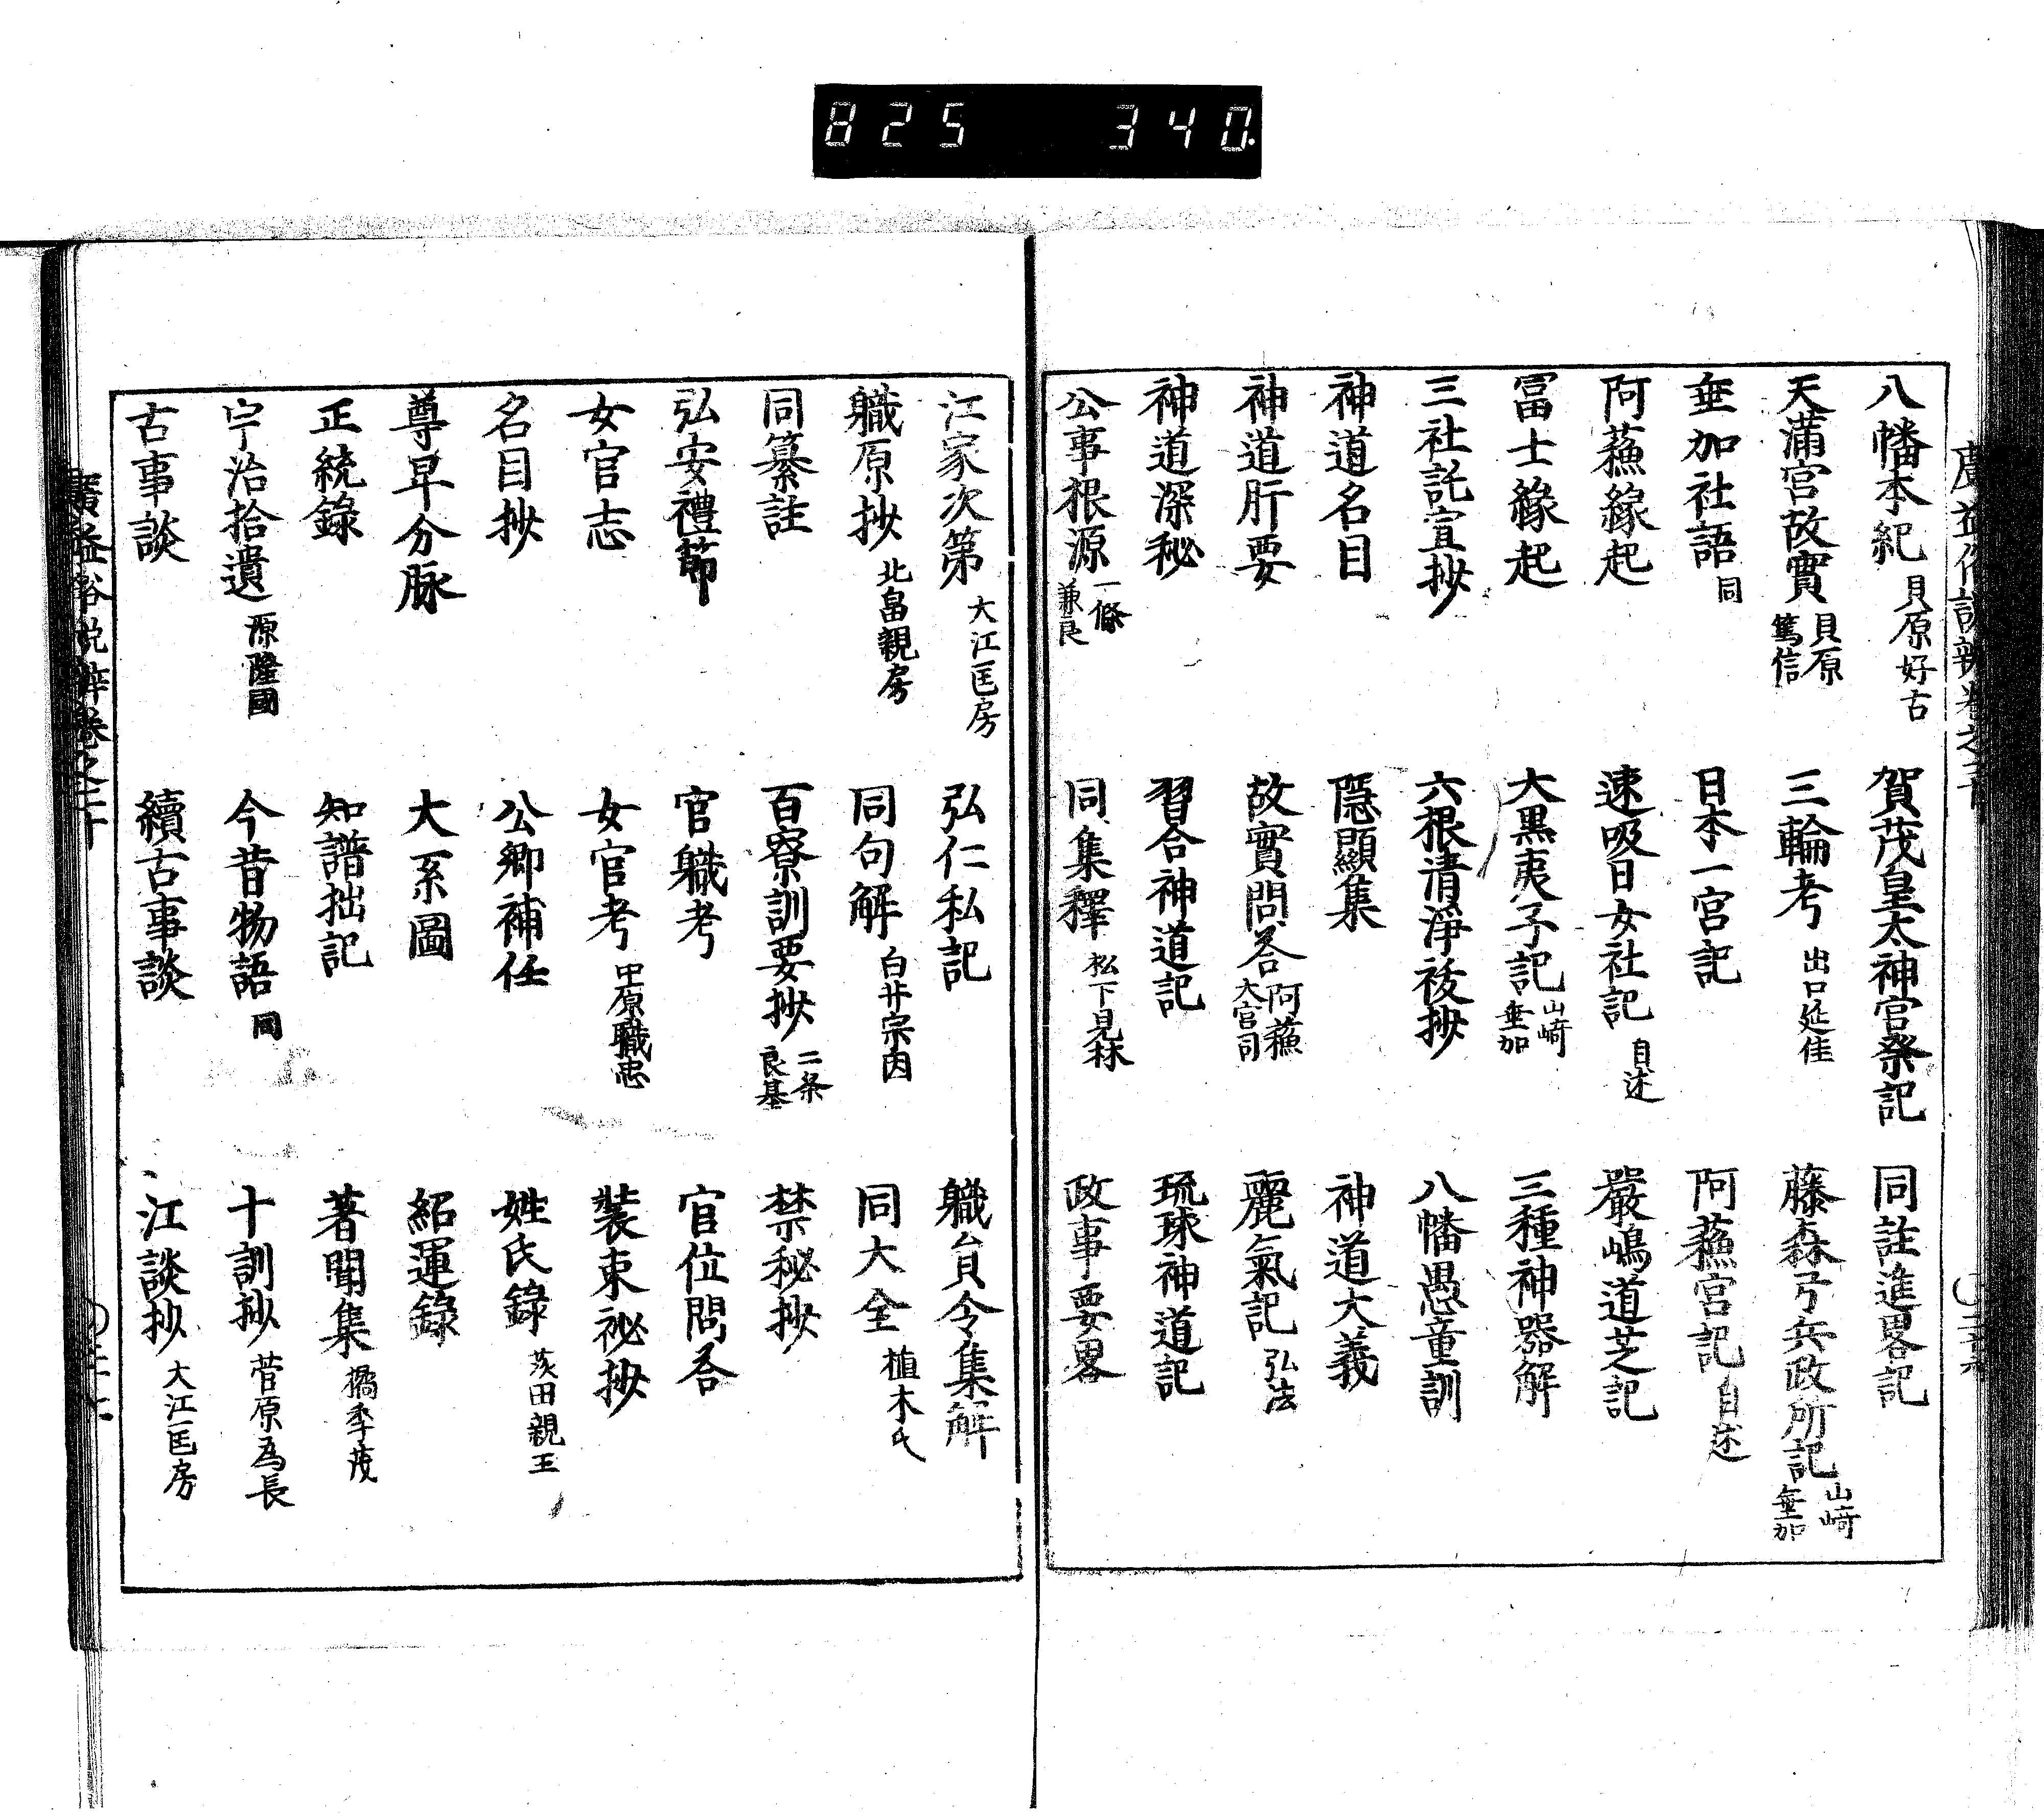 825 340
八幡本紀 貝原好古 賀茂皇太神宮祭記 同註進畧記
天満宮故實 貝原篤信 三輪考 出口延佳 藤森弓兵政所記 山﨑垂加
垂加社語 同 日本一宮記 阿蘓宮記 自述
阿蘓縁起 速吸日女社記 自述 嚴嶋道芝記
冨士縁起 大黒夷子記 山﨑垂加 三種神器解
三社託宣抄 六根清淨祓抄 八幡愚童訓
神道名目 隠顯集 神道大義
神道肝要 故實問答 阿蘓大宮司 麗氣記 弘法
神道深秘 習合神道記 琉球神道記
公事根源 一條兼良 同集釋 松下見林 政事要畧
江家次第 大江匡房 弘仁私記 職員令集解
職原抄 北畠親房 同句解 白井宗因 同大全 植木氏
同纂註 百寮訓要抄 二条良基 禁秘抄
弘安禮節 官職考 官位問答
女官志 女官考 中原職忠 裝束祕抄
名目抄 公卿補任 姓氏錄 茨田親王
尊卑分脉 大系圖 紹運錄
正統錄 知譜拙記 著聞集 橘季茂
宇治拾遺 源隆國 今昔物語 同 十訓抄 菅原為長
古事談 續古事談 江談抄 大江匡房
廣益俗説辨卷之二十